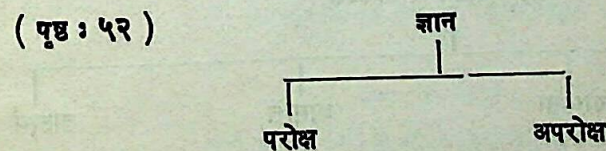 ( पृष्ठ : ५२ )
ज्ञान
परोक्ष अपरोक्ष